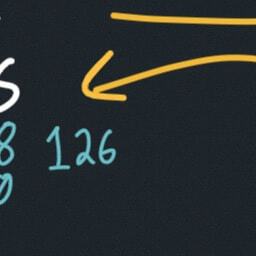 s
8 126
0